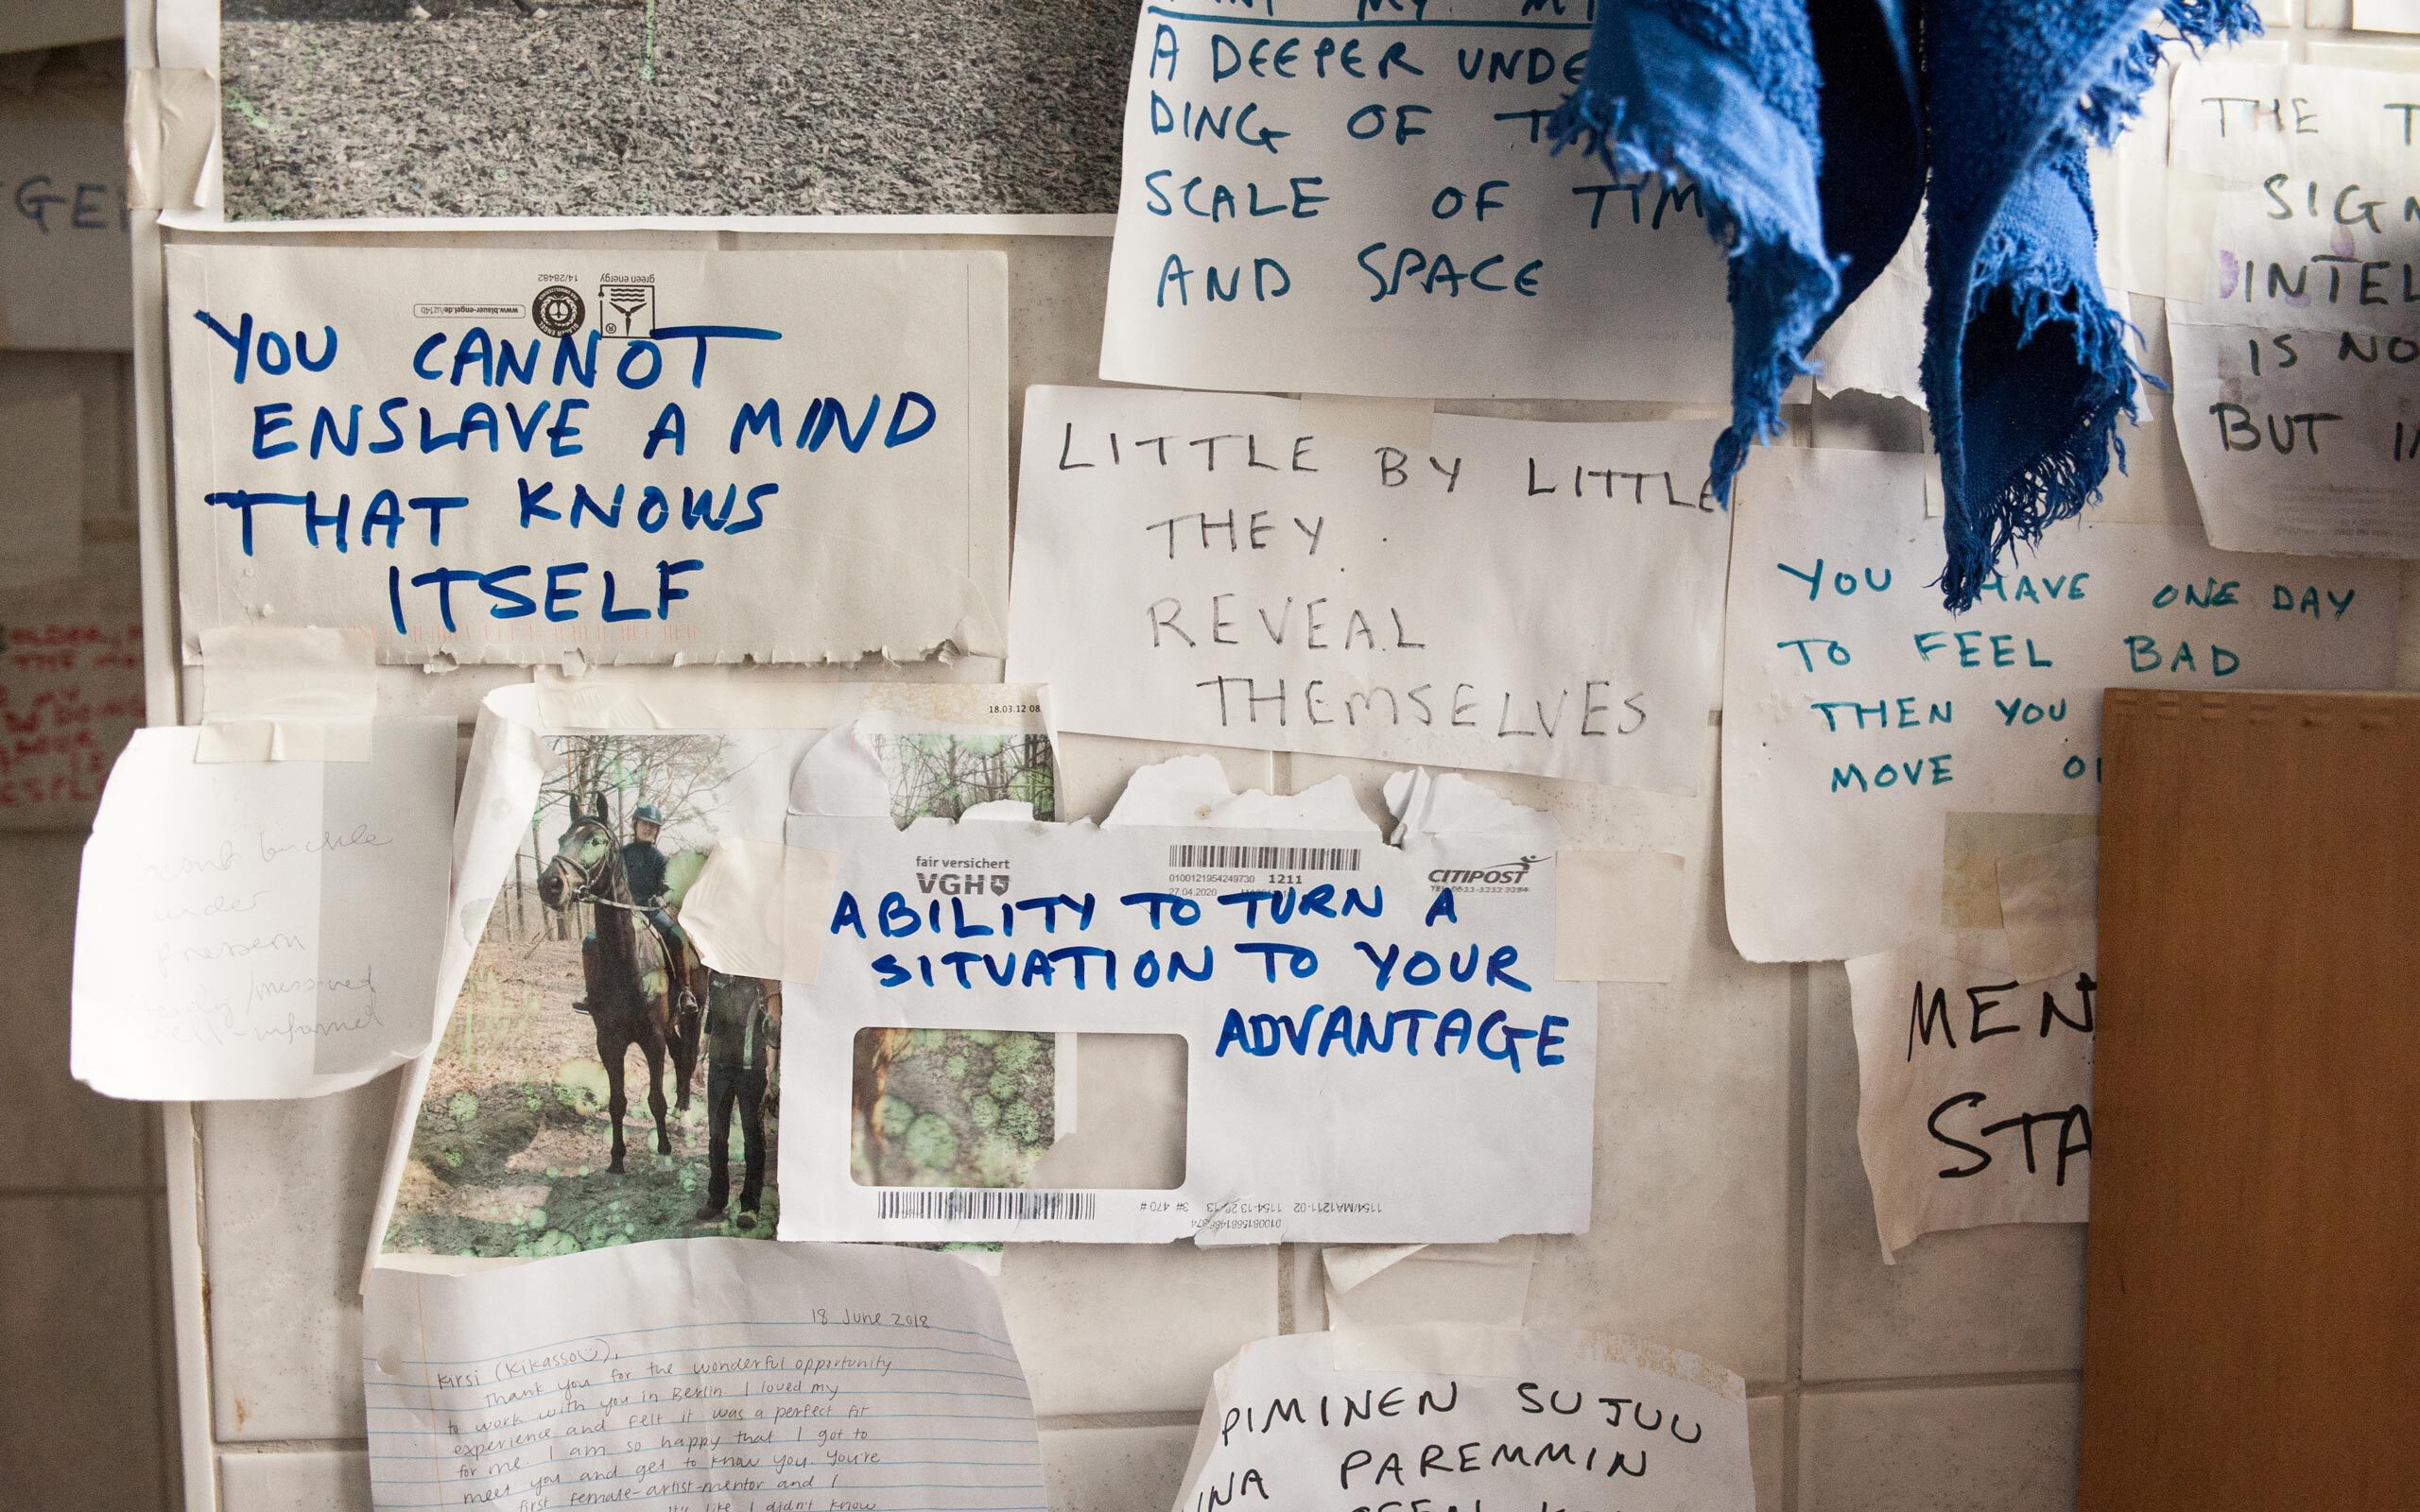 A DEEPER UNDE
DING OF
SCALE OF TIM
AND SPACE
THE T
SIGN
INTEL
IS NO
BUT
GE
14/28482
green energy
www.blauer-engel.de/uz14b
YOU CANNOT
ENSLAVE A MIND
THAT KNOWS
ITSELF
LITTLE BY LITTLE
THEY
REVEAL
THEMSELVES
YOU HAVE ONE DAY
TO FEEL BAD
THEN YOU
MOVE
18.03.12 08
under
well-informed
fair versichert
VGH
0100121954249730 1211
27.04.2020
CITIPOST
ABILITY TO TURN A
SITUATION TO YOUR
ADVANTAGE
MEN
STA
18 June 2018
Kirsi (Kikasso),
Thank you for the wonderful opportunity
to work with you in Berlin. I loved my
experience and felt it was a perfect fit
for me. I am so happy that I got to
meet you and get to know you. You're
first female-artist-mentor and I
like I didn't know
PIMINEN SUJUU
INA PAREMMIN